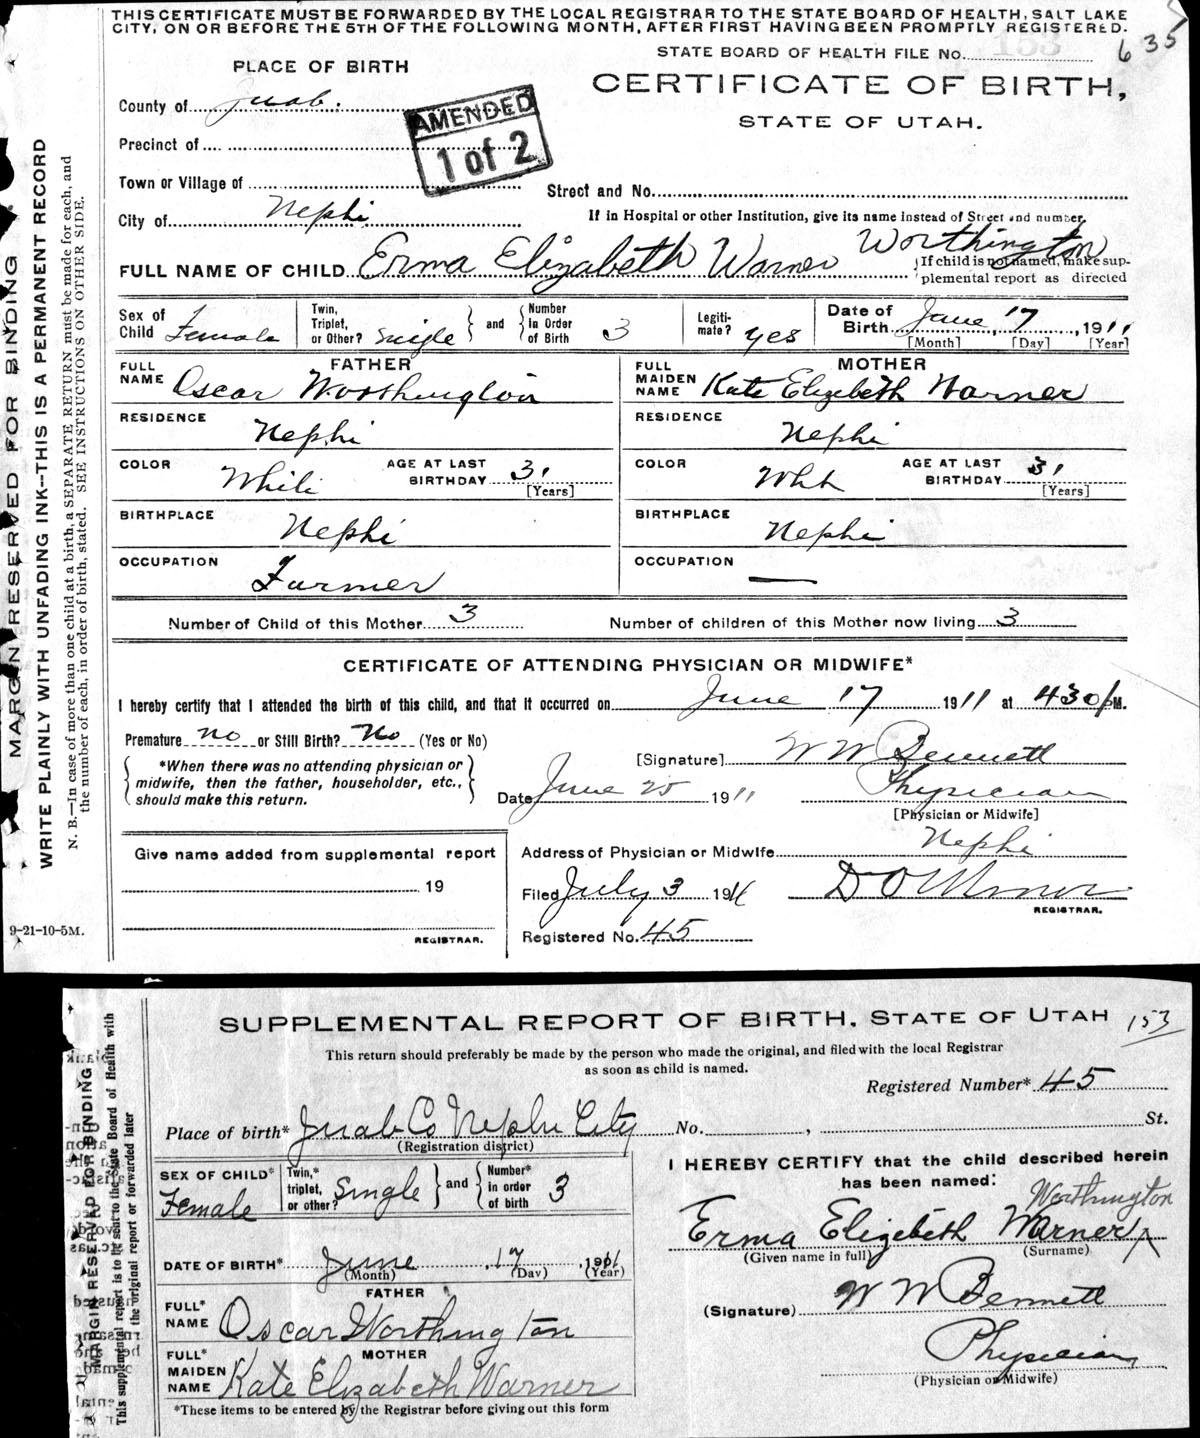 THIS CERTIFICATE MUST BE FORWARDED BY THE LOCAL REGISTRAR TO THE STATE BOARD OF HEALTH, SALT LAKE
CITY, ON OR BEFORE THE 5TH OF THE FOLLOWING MONTH, AFTER FIRST HAVING BEEN PROMPTLY REGISTERED.
STATE BOARD OF HEALTH FILE No. 153
635
PLACE OF BIRTH
CERTIFICATE OF BIRTH,
STATE OF UTAH.
County of Juab.
AMENDED
1 of 2
Precinct of
Town or Village of
Street and No.
City of Nephi
If in Hospital or other Institution, give its name instead of Street and number.
FULL NAME OF CHILD Erma Elizabeth Warner Worthington
If child is not named, make sup-
plemental report as directed
Sex of Child Female
Twin, Triplet, or Other? Single and Number in Order of Birth 3
Legiti-mate? yes
Date of Birth June 17, 1911
[Month] [Day] [Year]
FATHER
FULL NAME Oscar Worthington
MOTHER
FULL MAIDEN NAME Kate Elizabeth Warner
RESIDENCE Nephi
RESIDENCE Nephi
COLOR White
AGE AT LAST BIRTHDAY 31 [Years]
COLOR
AGE AT LAST BIRTHDAY 31 [Years]
BIRTHPLACE Nephi
BIRTHPLACE Nephi
OCCUPATION Farmer
OCCUPATION —
Number of Child of this Mother 3
Number of children of this Mother now living 3
CERTIFICATE OF ATTENDING PHYSICIAN OR MIDWIFE*
I hereby certify that I attended the birth of this child, and that it occurred on June 17 1911 at 430 P.M.
Premature no or Still Birth? No (Yes or No)
*When there was no attending physician or
midwife, then the father, householder, etc.,
should make this return.
[Signature] W W Bennett
Date June 25 1911
Physician
[Physician or Midwife]
Give name added from supplemental report
19
REGISTRAR.
Address of Physician or Midwife Nephi
Filed July 3 1911
REGISTRAR.
Registered No. 45
9-21-10-5M.
MARGIN RESERVED FOR BINDING
WRITE PLAINLY WITH UNFADING INK--THIS IS A PERMANENT RECORD
N. B.—In case of more than one child at a birth, a SEPARATE RETURN must be made for each, and
the number of each, in order of birth, stated. SEE INSTRUCTIONS ON OTHER SIDE.
SUPPLEMENTAL REPORT OF BIRTH, STATE OF UTAH
153
This return should preferably be made by the person who made the original, and filed with the local Registrar
as soon as child is named.
Registered Number* 45
Place of birth* Juab Co Nephi City No. , St.
(Registration district)
SEX OF CHILD* Female
Twin,* triplet, or other? Single and Number* in order of birth 3
I HEREBY CERTIFY that the child described herein
has been named:
Worthington
Erma Elizabeth Warner
(Given name in full) (Surname)
DATE OF BIRTH* June 17, 1911
(Month) (Day) (Year)
FATHER
FULL* NAME Oscar Worthington
(Signature) W W Bennett
MOTHER
FULL* MAIDEN NAME Kate Elizabeth Warner
Physician
(Physician or Midwife)
*These items to be entered by the Registrar before giving out this form
MARGIN RESERVED FOR BINDING
This supplemental report is to be sent to the State Board of Health with
the original report or forwarded later